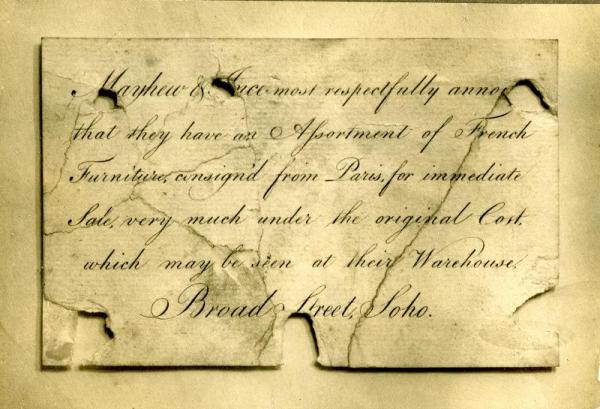 Mayhew & Ince most respectfully anno
that they have an Aſsortment of French
Furniture, consign'd from Paris, for immediate
Sale, very much under the original Cost,
which may be seen at their Warehouse,
Broad Street, Soho.